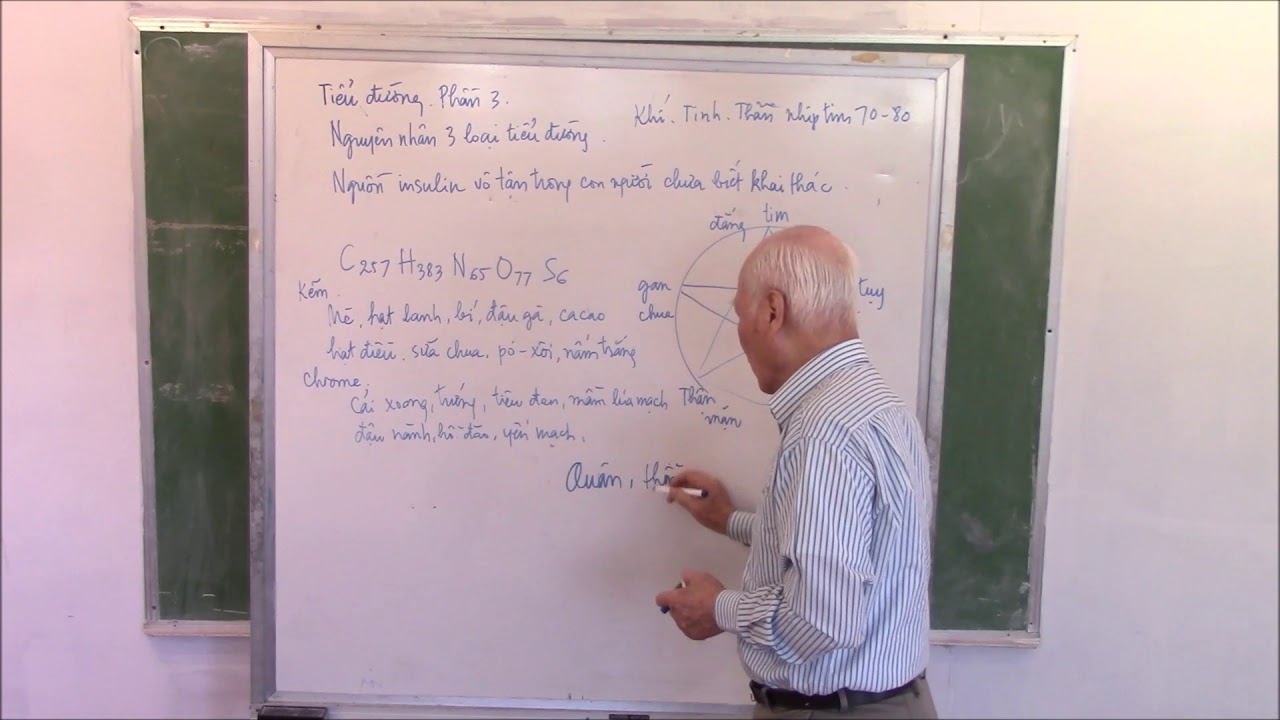 Tiểu đường. Phần 3.
Khí. Tinh. Thần nhịp tim 70-80
Nguyên nhân 3 loại tiểu đường.
Nguồn insulin vô tận trong con người chưa biết khai thác.
đắng tim
C257 H383 N65 O77 S6
gan
chua
tụy
Kẽm.
Mè, hạt lanh, bí, đậu gà, cacao
hạt điều. sữa chua. pó-xôi, nấm trắng
chrome.
Cải xoong, trứng, tiêu đen, mầm lúa mạch
đậu nành, hồ đào, yến mạch.
Thận
mặn
Quân, thầ